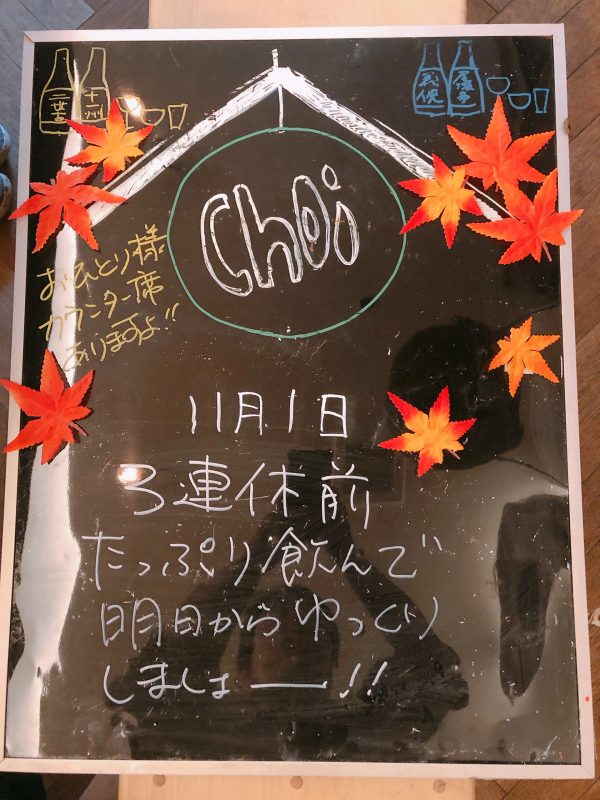 Choi
おひとり様
カウンター席
ありますよ!!
11月1日
3連休前
たっぷり飲んで
明日からゆっくり
しましょー!!